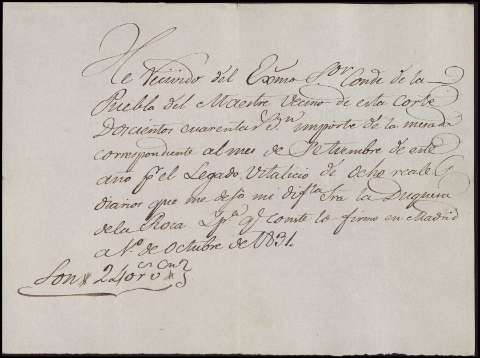 He Recivido del Exmo Sor Conde de la
Puebla del Maestre Vecino de esta Corte
Doscientos cuarenta rs vn importe de la mesada
correspondiente al mes de Setiembre de este
año pr el Legado Vitalicio de ocho reales
diarios que me dejó mi difta Sra la Duquesa
de la Roca Ypa qe conste lo firmo en Madrid
a 1º de Octubre de 1831.
Son 240 rs vn